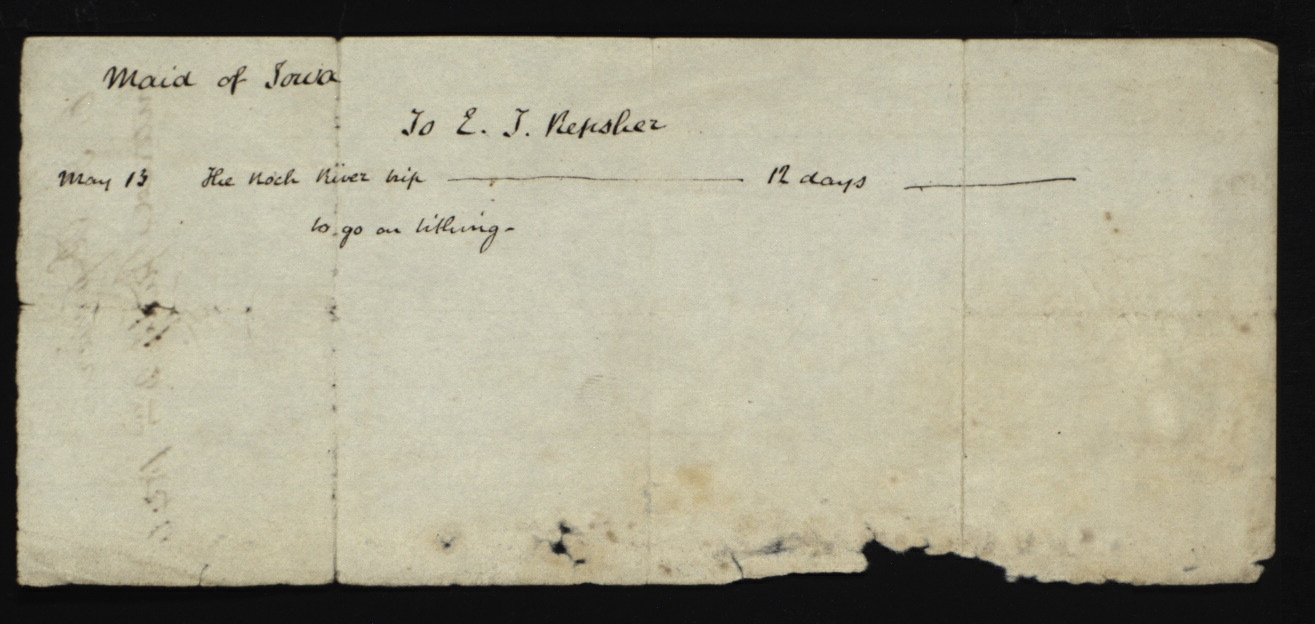 Maid of Iowa
To E. T. Repsher
May 13 The Rock River trip 12 days
to go on tithing-